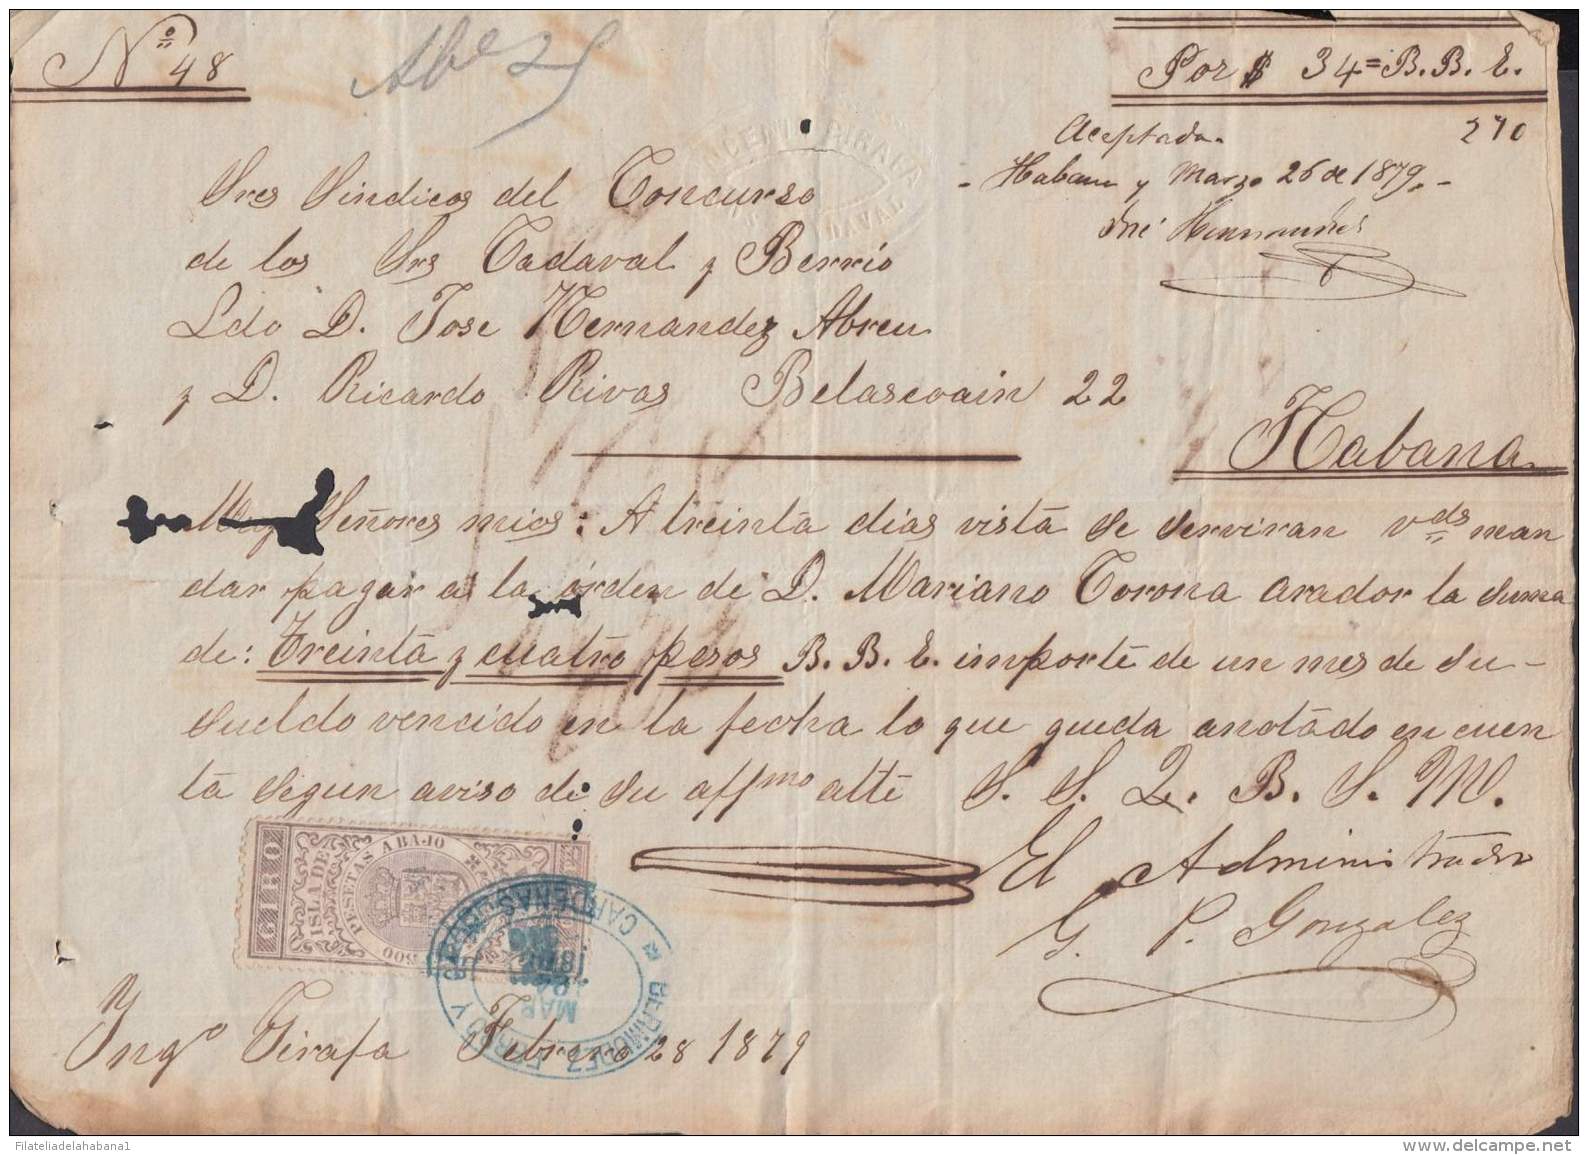 Nº 48
Abe 25
Por $ 34= B. B. E.
270
Aceptada.
Habana y Marzo 26 de 1879.
José Hernandez
Sres Sindicos del Concurso
de los Srs Cadaval y Berrio
Ldo D. Jose Hernandez Abreu
y D. Ricardo Rivas Belascoain 22
Habana
Muy Señores mios: A treinta dias vista se serviran Vds man
dar pagar a la órden de D. Mariano Corona arador la suma
de: Treinta y cuatro pesos B. B. E. importe de un mes de su-
sueldo vencido en la fecha lo que queda anotado en cuen
ta segun aviso de su affmo atte S. S. Q. B. S. M.
El Administrador
G. P. Gonzalez
GIRO
ISLA DE
500 PESETAS ABAJO
BERMUDEZ
CARDENAS
MAR
24
Ingº Girafa Febrero 28 1879
INGENIO GIRAFA
CADAVAL
Filateliadelahabana1
www.delcampe.net